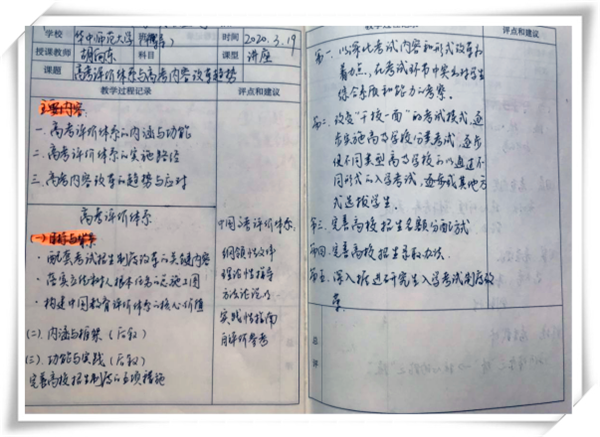 学校 华中师范大学
时间 2020.3.19
授课教师 胡向东
科目
课型 讲座
课题 高考评价体系与高考内容改革趋势
教学过程记录
评点和建议
主要内容:
一.高考评价体系的内涵与功能
二.高考评价体系的实施路径
三.高考内容改革的趋势与应对
高考评价体系
(一)目标与
·配套考试招生制度改革的关键内容
·落实立德树人根本任务的
·构建中国教育评价体系的核心价值
(二).内涵与框架(后叙)
(三).功能与实践(后叙)
完善高校招生制度的五项措施
中国高考评价体系
纲领性文件
理论性指导
方法论
实践性指南
自评价参考
教学过程记录
评点和建议
第一.以深化考试内容和形式改革为
着力点,在考试环节中突出对学生
综合素质和能力的考察.
第二.改变“千校一面”的考试模式,逐
步实施高等学校分类考试,逐步
使不同类型高等学校可以通过不
同形式的入学考试,逐步或其他方
式选拔学生.
第三.完善高校招生名额分配方式
第四.完善高校招生录取办法.
第五.深入推进研究生入学考试制度改
革
总
评